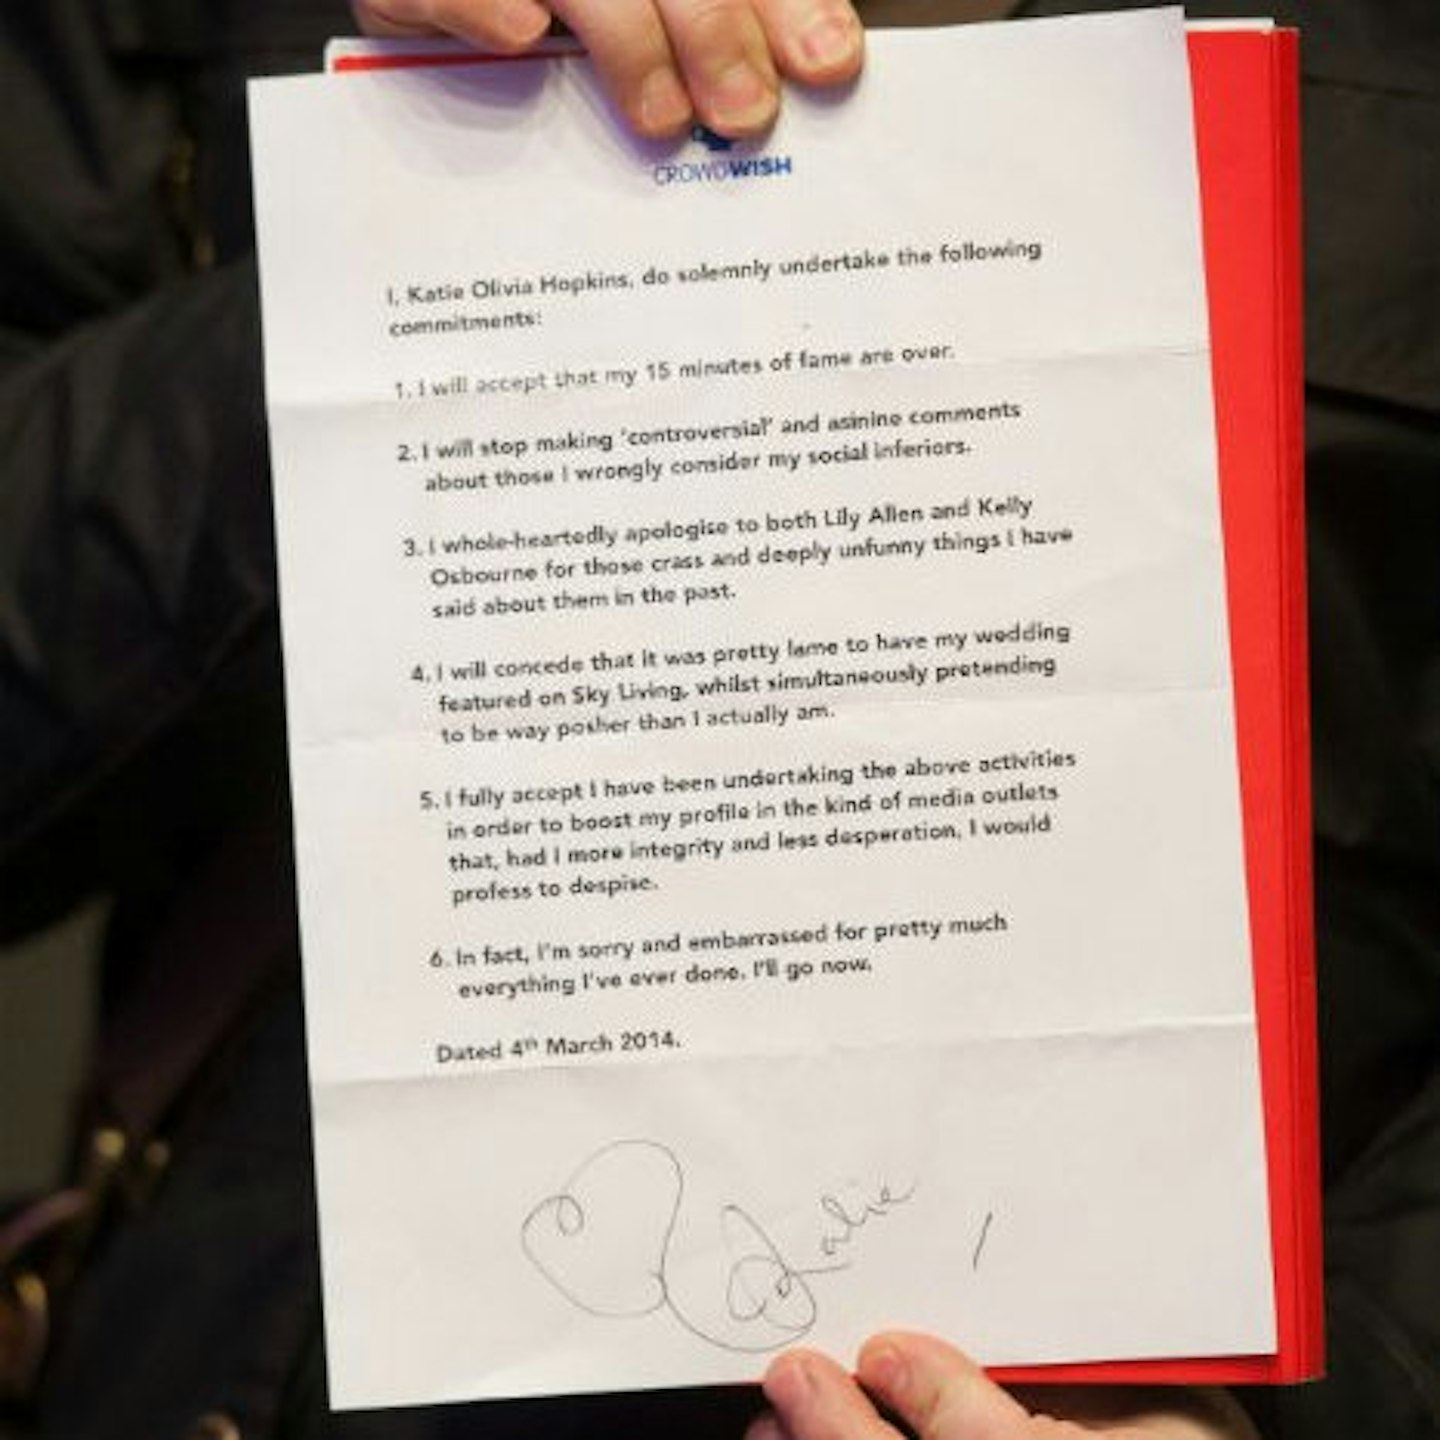 CROWDWISH
I, Katie Olivia Hopkins, do solemnly undertake the following
commitments:
1. I will accept that my 15 minutes of fame are over.
2. I will stop making 'controversial' and asinine comments
about those I wrongly consider my social inferiors.
3. I whole-heartedly apologise to both Lily Allen and Kelly
Osbourne for those crass and deeply unfunny things I have
said about them in the past.
4. I will concede that it was pretty lame to have my wedding
featured on Sky Living, whilst simultaneously pretending
to be way posher than I actually am.
5. I fully accept I have been undertaking the above activities
in order to boost my profile in the kind of media outlets
that, had I more integrity and less desperation, I would
profess to despise.
6. In fact, I'm sorry and embarrassed for pretty much
everything I've ever done. I'll go now.
Dated 4th March 2014.